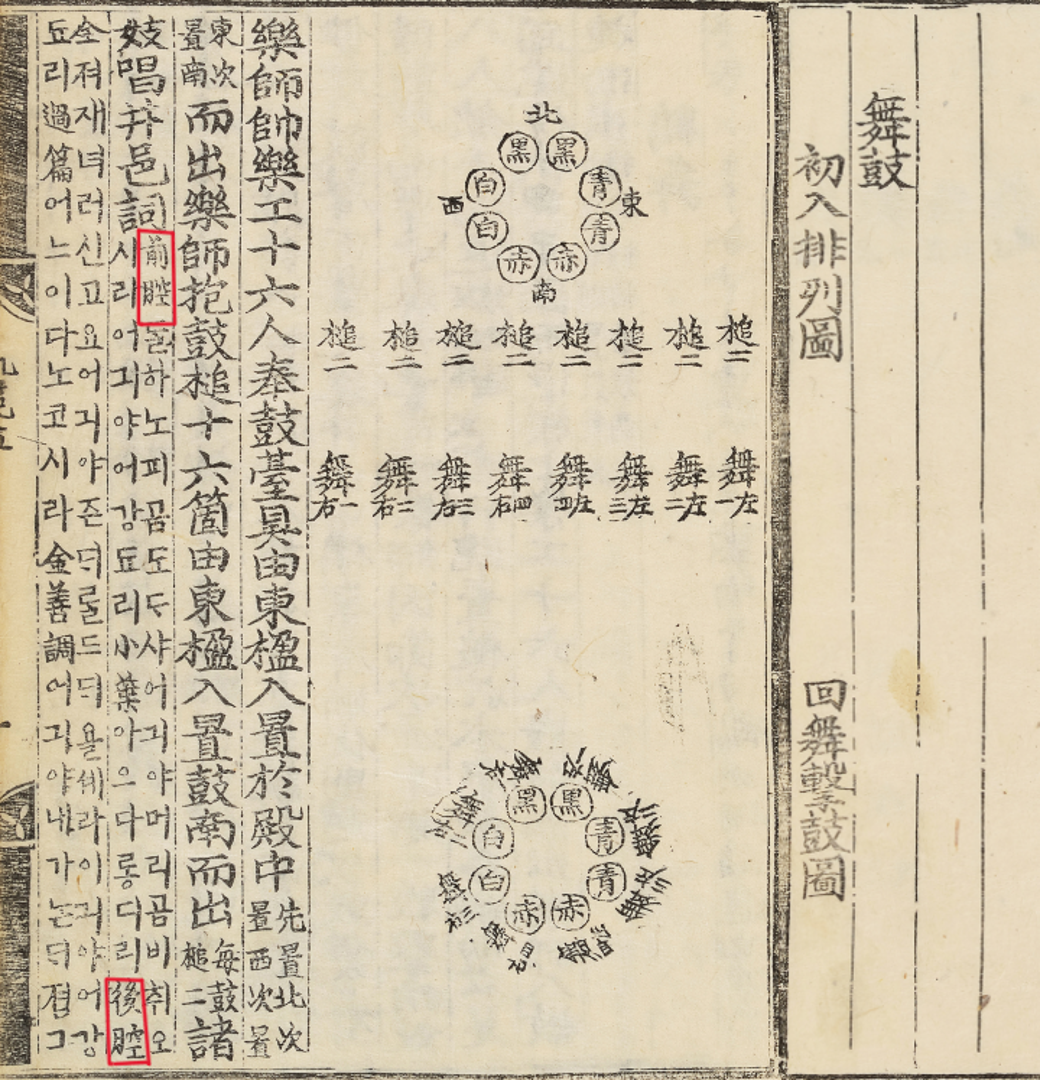 舞鼓
初入排列圖
回舞擊鼓圖
北
黑 黑
白 靑
西 東
白 靑
赤 赤
南
槌二 槌二 槌二 槌二 槌二 槌二 槌二 槌二
舞左一 舞左二 舞左三 舞左四 舞右四 舞右三 舞右二 舞右一
黑 黑
白 靑
白 靑
赤 赤
樂師帥樂工十六人奉鼓臺具由東楹入置於殿中先置北次置西次置
東次置南而出樂師抱鼓槌十六箇由東楹入置鼓南而出每鼓槌二諸
妓唱井邑詞前腔ᄃᆞᆯ하노피곰도ᄃᆞ샤어긔야머리곰비취오
시라어긔야어강됴리小葉아으다롱디리後腔
全져재녀러신고요어긔야즌ᄃᆡᄅᆞᆯ드ᄃᆡ욜셰라어긔야어강
됴리過篇어느이다노코시라金善調어긔야내가논ᄃᆡ졈그